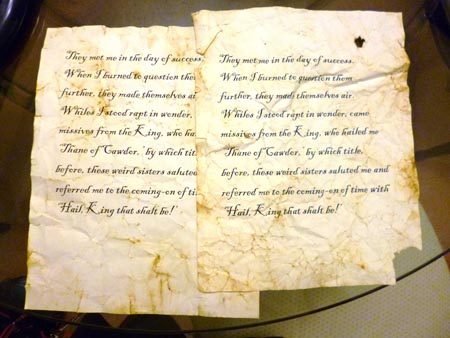 They met me in the day of success.
When I burned to question them
further, they made themselves air.
Whiles I stood rapt in wonder,
missives from the King, who hailed
'Thane of Cawdor,' by which title,
before, these weird sisters saluted
referred me to the coming-on of time
'Hail, King that shalt be!'
They met me in the day of success.
When I burned to question them
further, they made themselves air.
Whiles I stood rapt in wonder, came
missives from the King, who hailed me
'Thane of Cawdor,' by which title,
before, these weird sisters saluted me and
referred me to the coming-on of time with
'Hail, King that shalt be!'